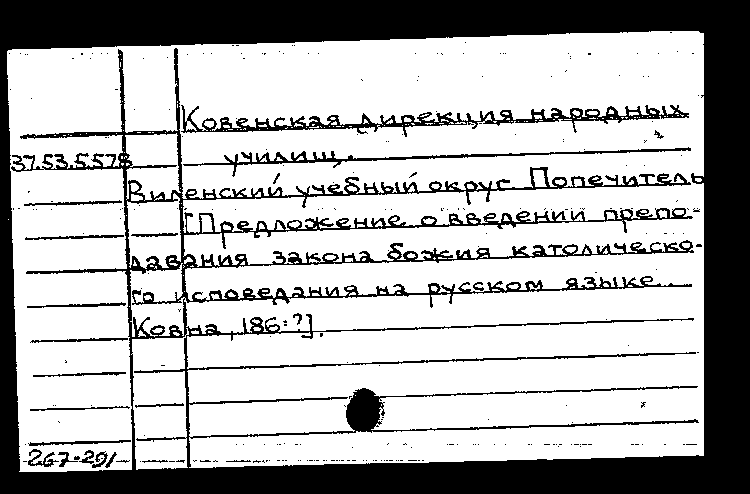 Ковенская дирекция народных
37.53.5.578 училищ.
Виленский учебный округ. Попечитель
[Предложение о введении препо-
давания закона божия католическо-
го исповедания на русском языке..
Ковна, 186·?].
267·291